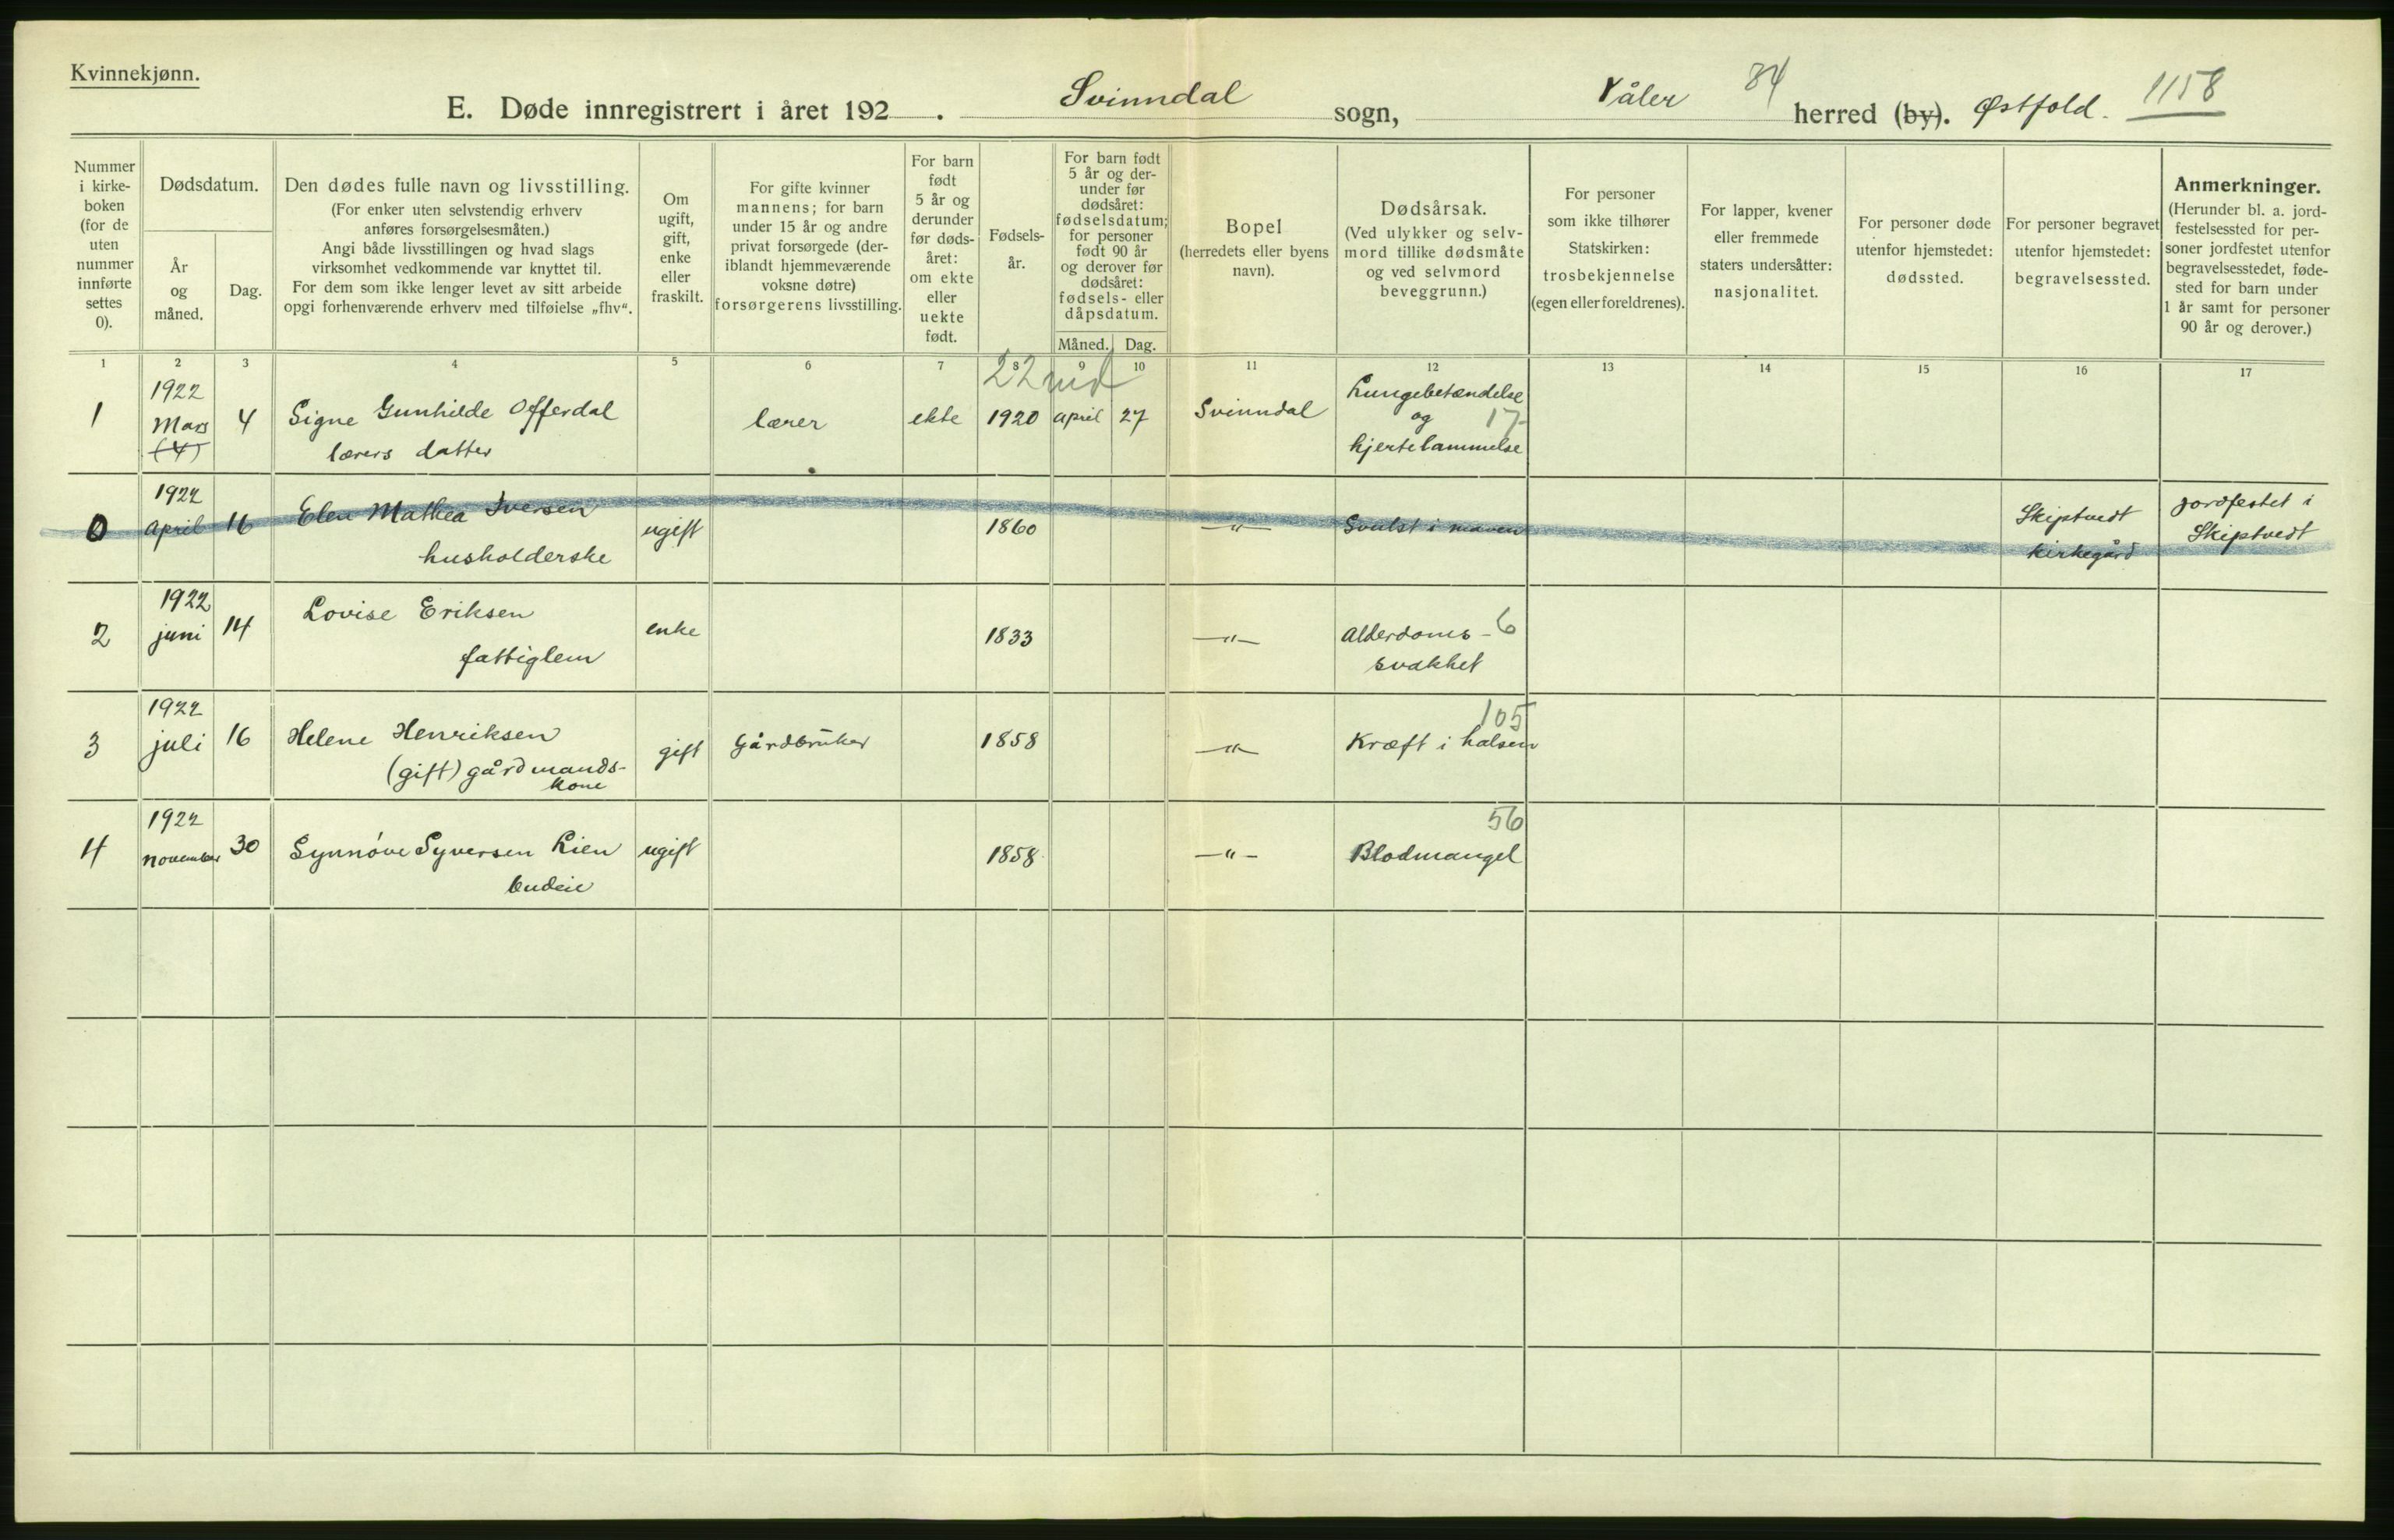 Kvinnekjønn.
E. Døde innregistrert i året 192 . Svinndal sogn, Våler 84 herred (by). Østfold. 1158
Nummer
i kirke-
boken
(for de
uten
nummer
innførte
settes
0).
Dødsdatum.
År
og
måned.
Dag.
Den dødes fulle navn og livsstilling.
(For enker uten selvstendig erhverv
anføres forsørgelsesmåten.)
Angi både livsstillingen og hvad slags
virksomhet vedkommende var knyttet til.
For dem som ikke lenger levet av sitt arbeide
opgi forhenværende erhverv med tilføielse „fhv“.
Om
ugift,
gift,
enke
eller
fraskilt.
For gifte kvinner
mannens; for barn
under 15 år og andre
privat forsørgede (der-
iblandt hjemmeværende
voksne døtre)
forsørgerens livsstilling.
For barn
født
5 år og
derunder
før døds-
året:
om ekte
eller
uekte
født.
Fødsels-
år.
For barn født
5 år og der-
under før
dødsåret:
fødselsdatum;
for personer
født 90 år
og derover før
dødsåret:
fødsels- eller
dåpsdatum.
Måned. Dag.
Bopel
(herredets eller byens
navn).
Dødsårsak.
(Ved ulykker og selv-
mord tillike dødsmåte
og ved selvmord
beveggrunn.)
For personer
som ikke tilhører
Statskirken:
trosbekjennelse
(egen eller foreldrenes).
For lapper, kvener
eller fremmede
staters undersåtter:
nasjonalitet.
For personer døde
utenfor hjemstedet:
dødssted.
For personer begravet
utenfor hjemstedet:
begravelsessted.
Anmerkninger.
(Herunder bl. a. jord-
festelsessted for per-
soner jordfestet utenfor
begravelsesstedet, føde-
sted for barn under
1 år samt for personer
90 år og derover.)
1 2 3 4 5 6 7 8 9 10 11 12 13 14 15 16 17
1
1922
Mars
(4)
4
Signe Gunhilde Offerdal
lærers datter
lærer
ekte
22 md
1920
april
27
Svinndal
Lungebetændelse
og 17
hjertelammelse
0
1922
april
16
Elen Mathea Iversen
husholderske
ugift
1860
—"—
Svulst i maven
Skiptvedt
kirkegård
jordfestet i
Skiptvedt
2
1922
juni
14
Lovise Eriksen
fattiglem
enke
1833
—"—
Alderdoms- 6
svakhet
3
1922
juli
16
Helene Henriksen
(gift) gårdmands-
kone
gift
Gårdbruker
1858
—"—
105
Kræft i halsen
4
1922
november
30
Synnøve Syversen Lien
budeie
ugift
1858
—"—
56
Blodmangel